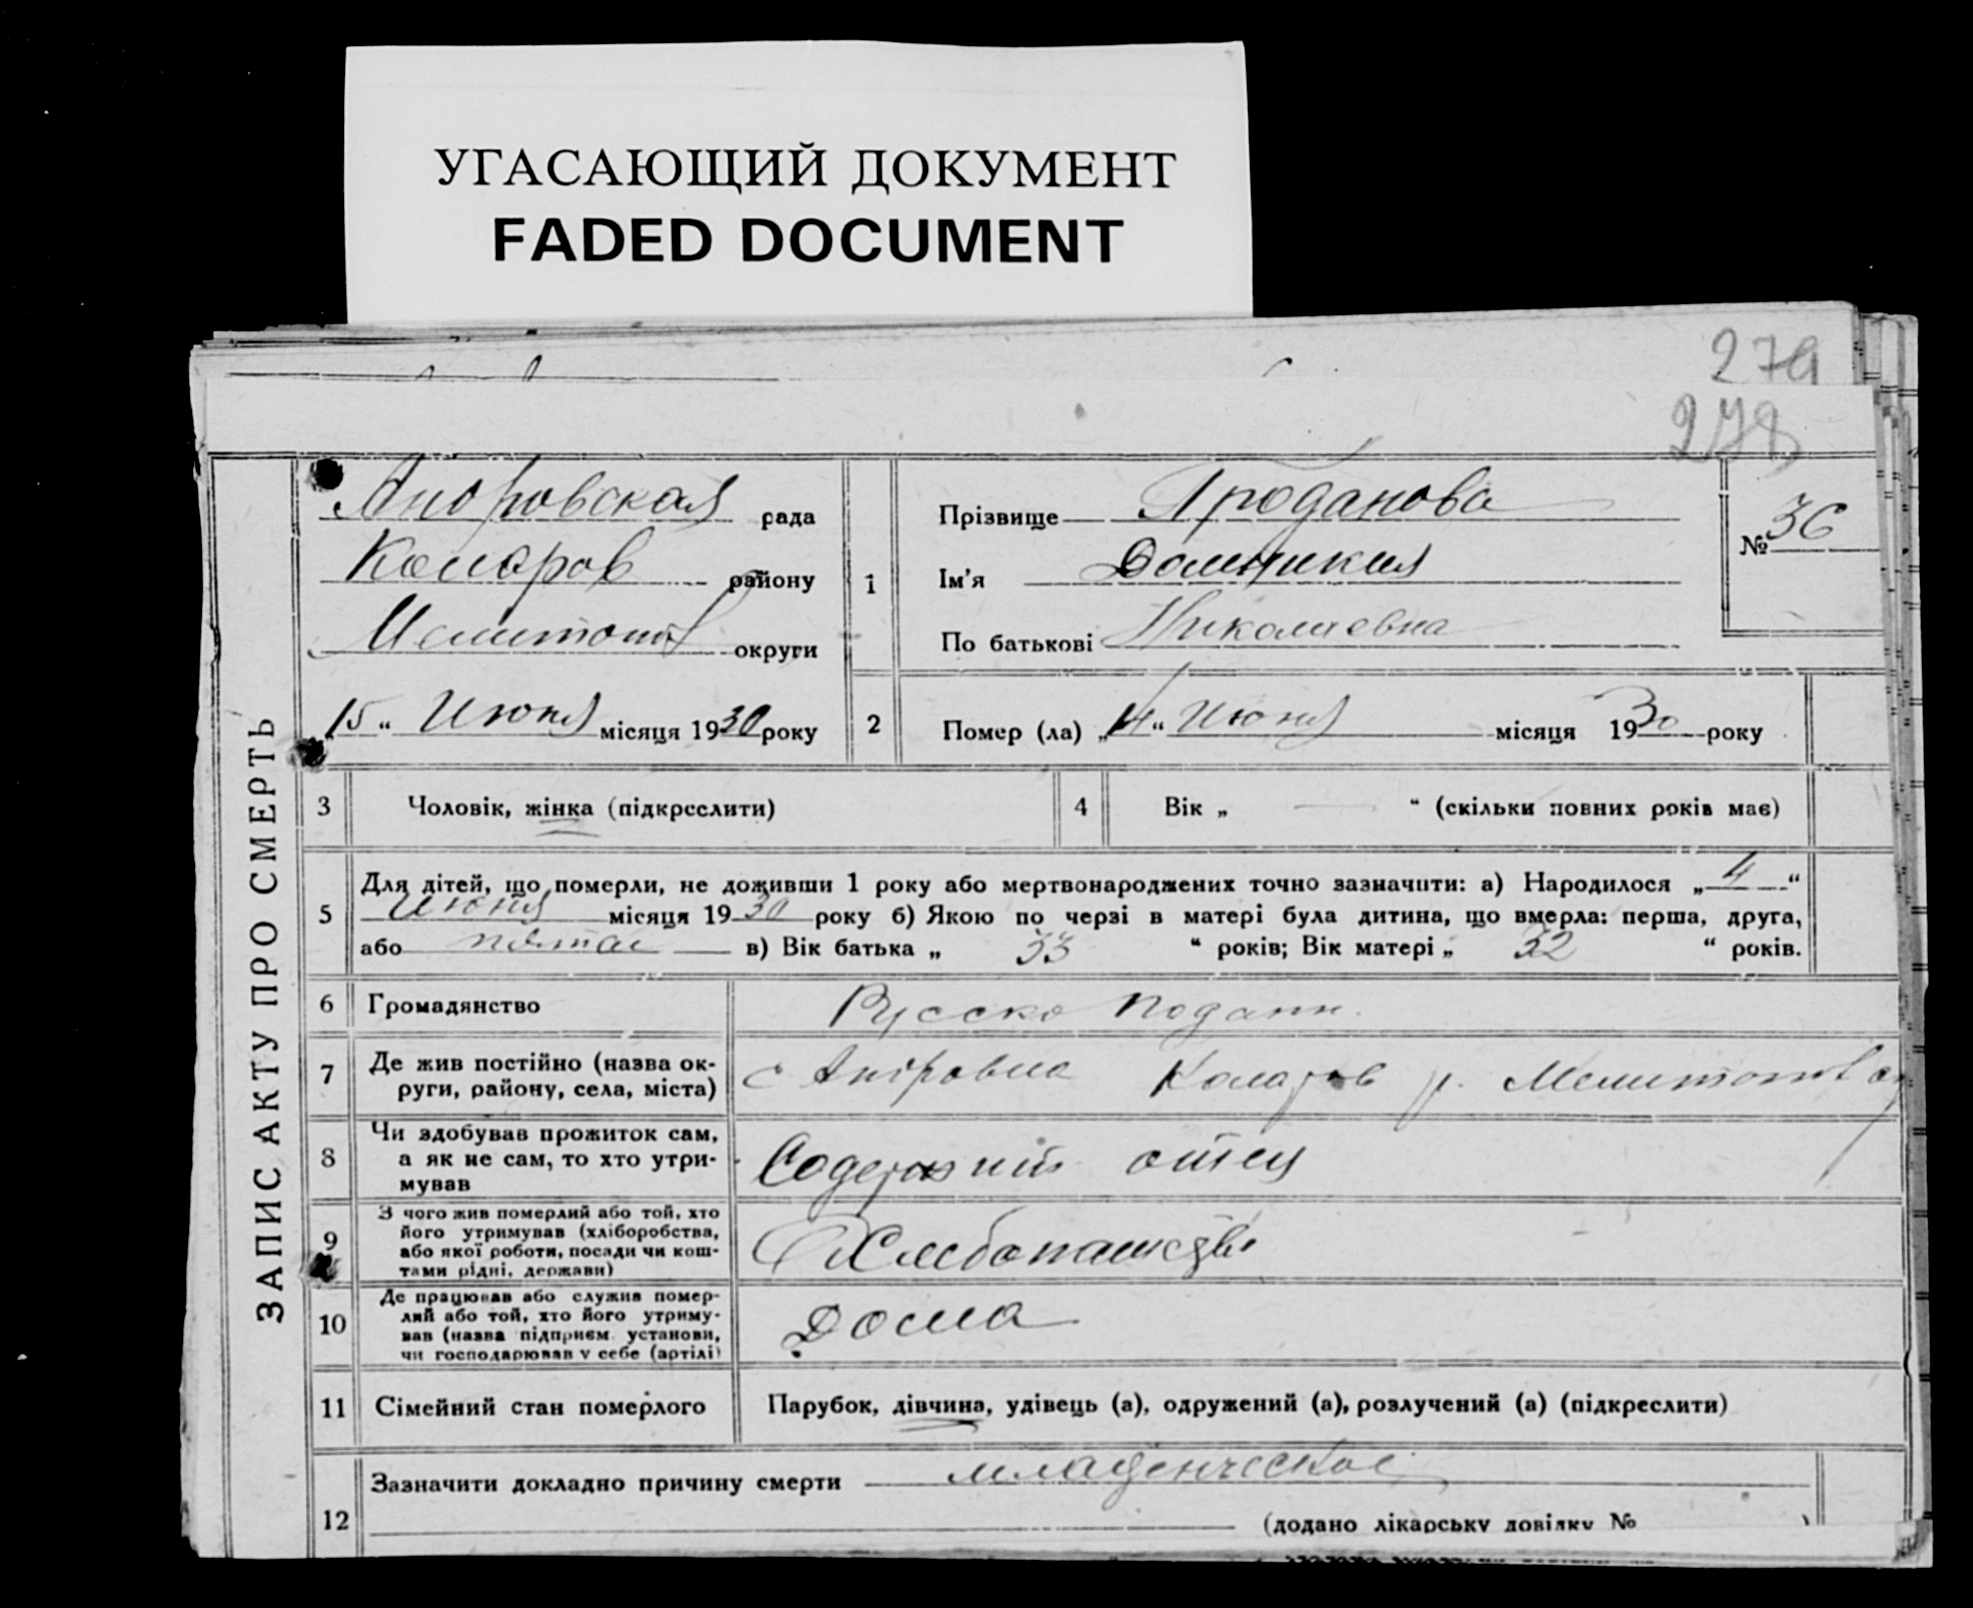 УГАСАЮЩИЙ ДОКУМЕНТ
FADED DOCUMENT
279
278
ЗАПИС АКТУ ПРО СМЕРТЬ
рада
Коларов району
Мелитоп округи
15 “ Июня місяця 1930 року
1
Прізвище Проданова
Ім’я Домникия
По батькові Николаевна
№ 36
2 Помер (ла) „ 14 “ Июня місяця 1930 року
3 Чоловік, жінка (підкреслити)
4 Вік „ — “ (скільки повних років має)
5 Для дітей, що померли, не доживши 1 року або мертвонароджених точно зазначити: а) Народилося „ 4 “
Июня місяця 1930 року б) Якою по черзі в матері була дитина, що вмерла: перша, друга,
або пятая в) Вік батька „ 33 “ років; Вік матері „ 32 “ років.
6 Громадянство Русско подан.
7 Де жив постійно (назва ок-
руги, району, села, міста) с Коларов р. Мелитопол
8 Чи здобував прожиток сам,
а як не сам, то хто утри-
мував
Содержит отец
9 З чого жив померлий або той, хто
його утримував (хліборобства,
або якої роботи, посади чи кош-
тами рідні, держави)
Хлебопашеств
10 Де працював або служив помер-
лий або той, хто його утриму-
вав (назва підприєм. установи,
чи господарював у себе (артілі)
Дома
11 Сімейний стан померлого Парубок, дівчина, удівець (а), одружений (а), розлучений (а) (підкреслити)
12 Зазначити докладно причину смерти младенческое
(додано лікарську довідку № )